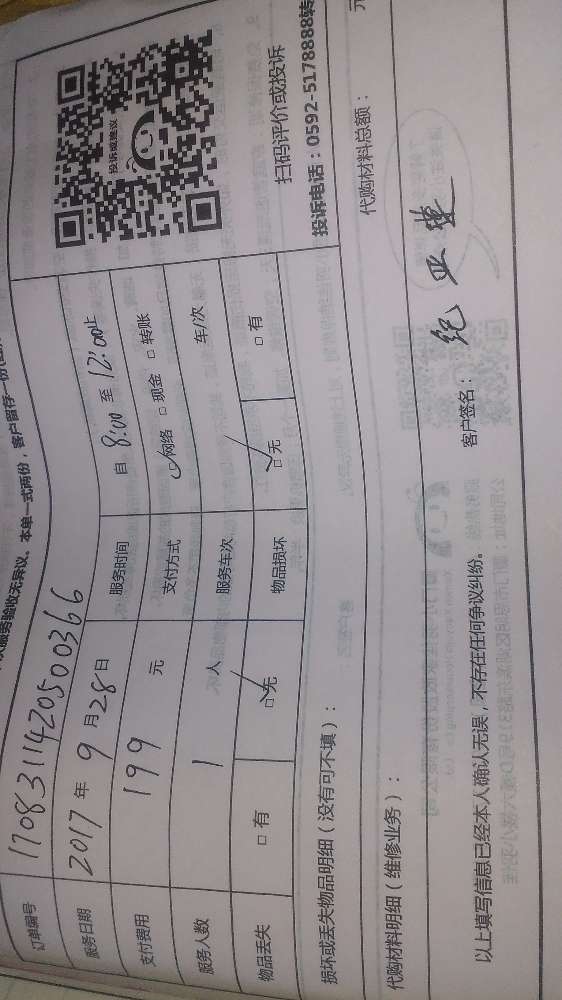 次服务验收无异议。本单一式两份，客户留存一份
订单编号 17083114205003​66
服务日期 2017 年 9 月 28 日 服务时间 自 8:00 至 12:00 止
支付费用 199 元 支付方式 ☑网络 □现金 □转账
服务人数 1 人 服务车次 车/次
物品丢失 □有 ☑无 物品损坏 ☑无 □有
投诉或建议
扫码评价或投诉
投诉电话：0592-5178888转
损坏或丢失物品明细（没有可不填）：
代购材料明细（维修业务）： 代购材料总额： 元
以上填写信息已经本人确认无误，不存在任何争议纠纷。 客户签名： 纪亚莲